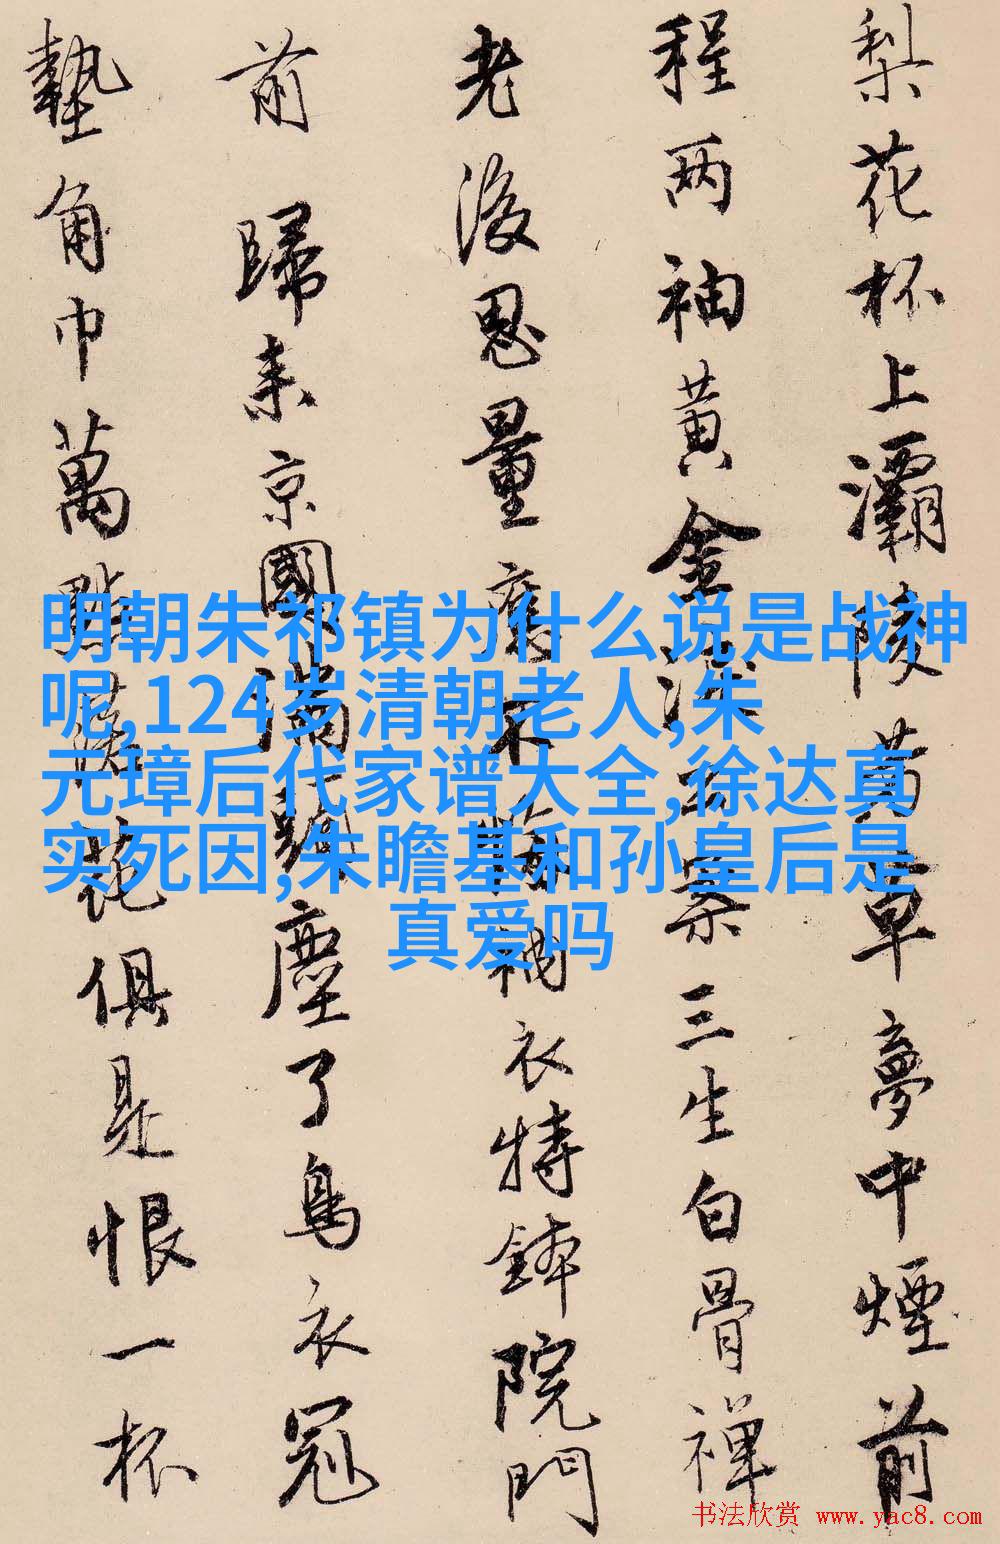 梨花杯上灞陵芳草夢中煙前
程两袖黄金淚公案三生白骨禅
老後思量應不悔衲衣持鉢院門
前 歸来京國滿塵了烏衣冠
墊角巾萬點落花俱是恨一杯
明朝朱祁镇为什么说是战神
呢,124岁清朝老人,朱
元璋后代家谱大全,徐达真
实死因,朱瞻基和孙皇后是
真爱吗
书法欣赏 www.yac8.com